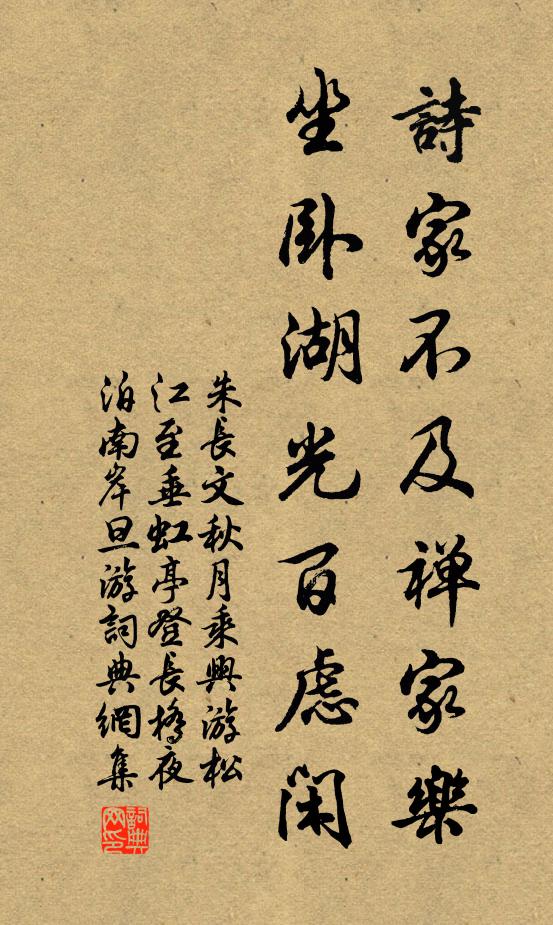 詩家不及禅家樂
坐卧湖光百慮閑
朱長文秋月乘興游松
江至垂虹亭登長橋夜
泊南岸旦游詞典網集
詞典网印